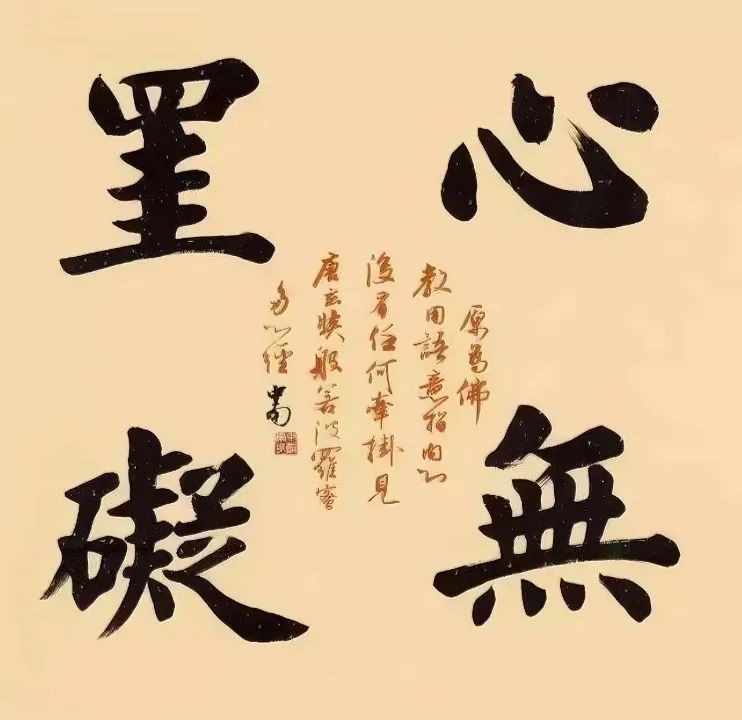 心無
罣礙
原為佛
教用語意指内心
沒有任何牽掛見
唐玄奘般若波羅蜜
多心經